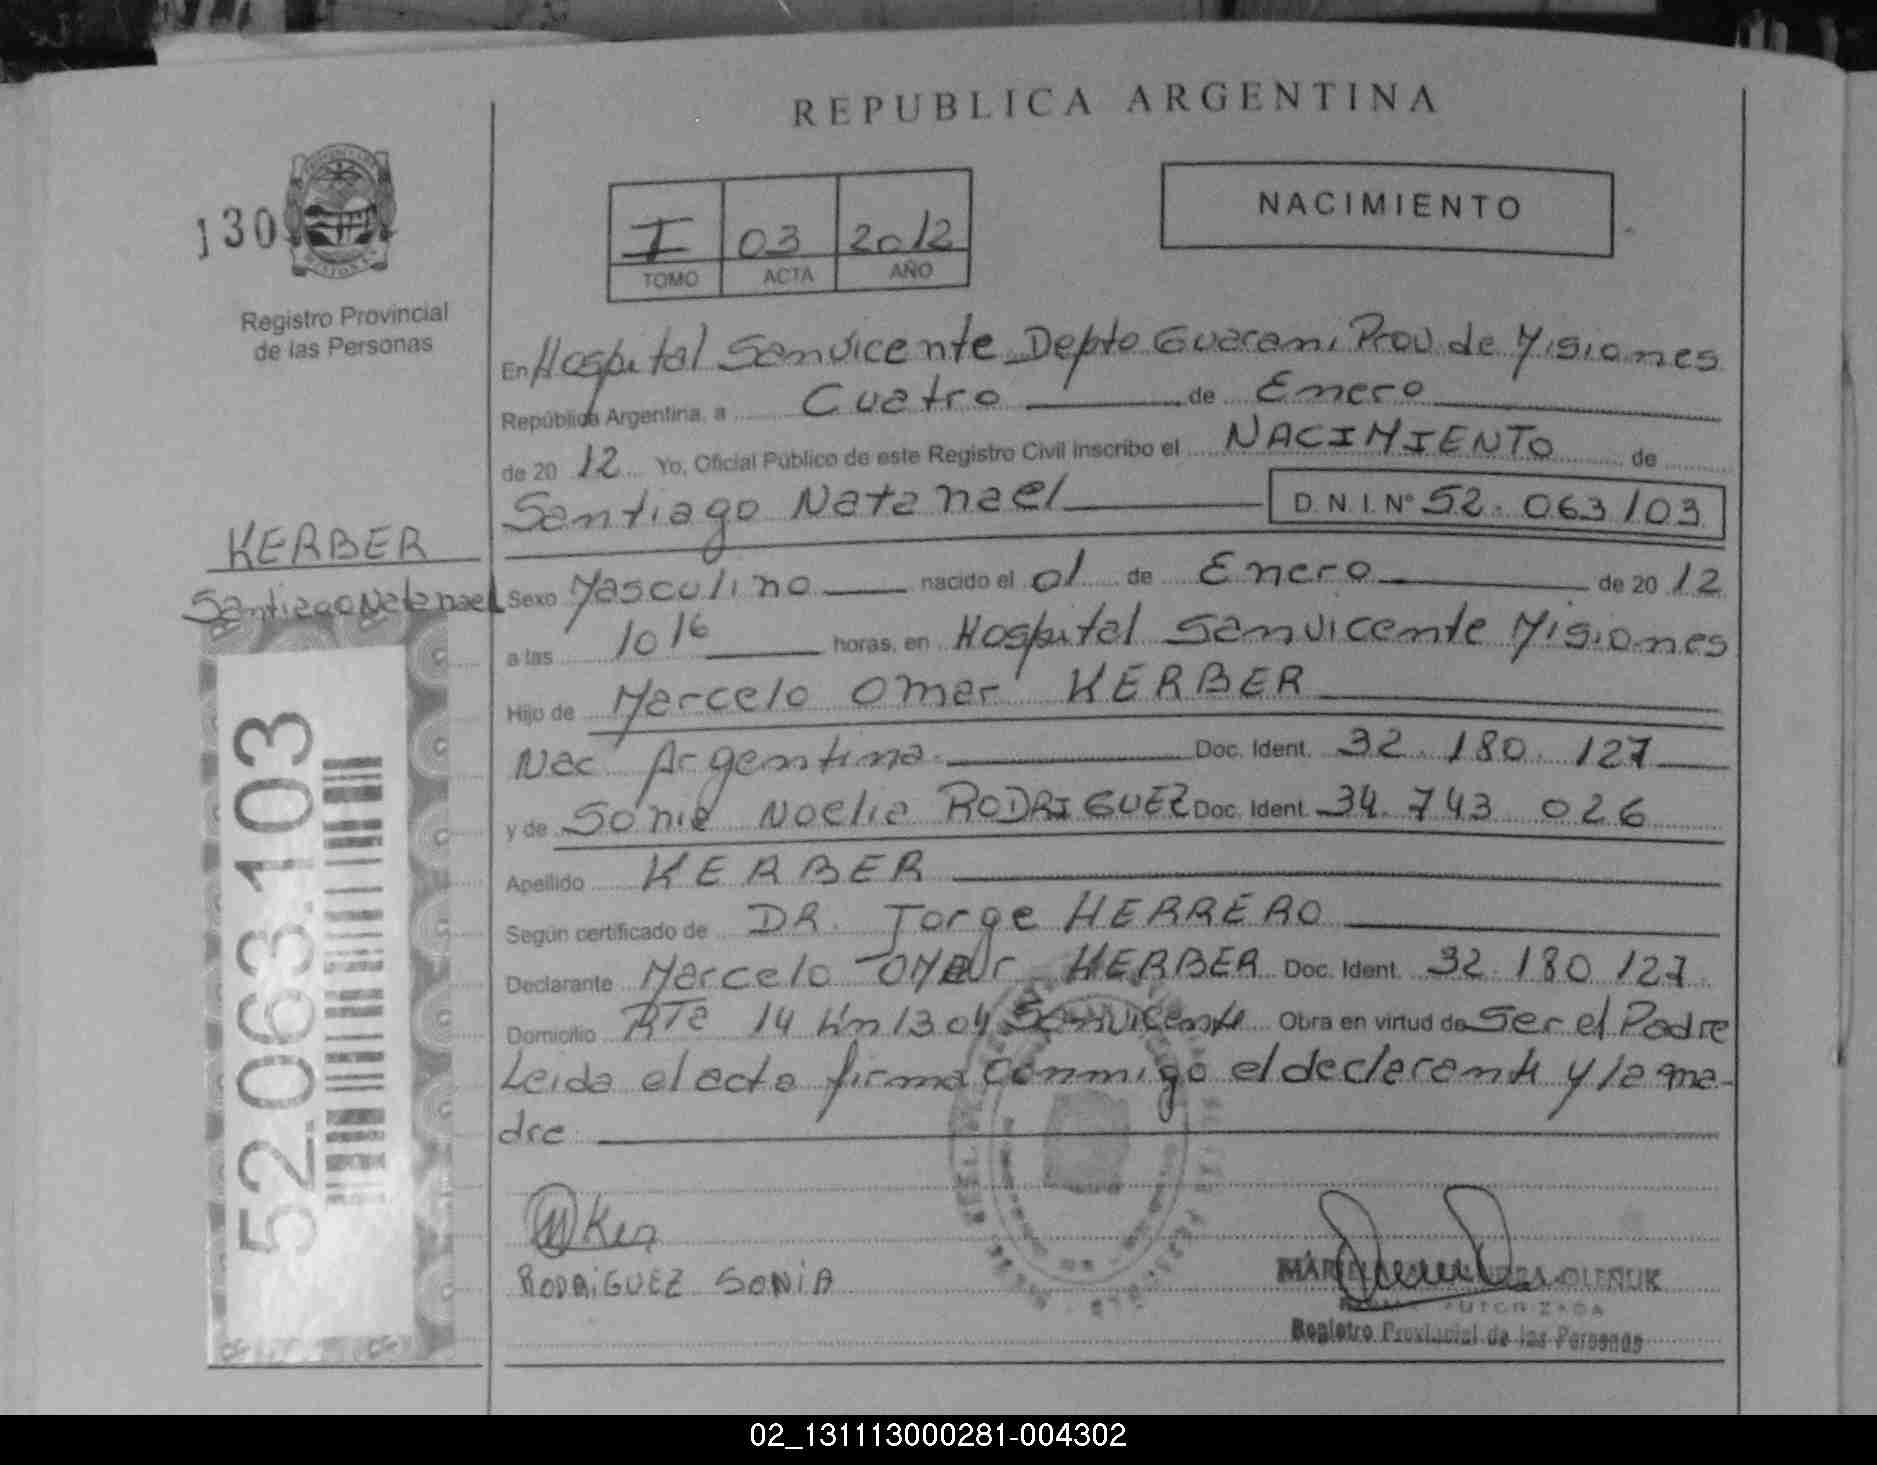 REPUBLICA ARGENTINA
130
Registro Provincial
de las Personas
I 03 2012
TOMO ACTA AÑO
NACIMIENTO
En Hospital Sanvicente Depto Guarani Prov. de Misiones
República Argentina, a Cuatro de Enero
de 20 12 Yo, Oficial Público de este Registro Civil inscribo el NACIMIENTO de
Santiago Natanael D.N.I. Nº 52.063103
KERBER
Santiago Natanael
Sexo Masculino nacido el 01 de Enero de 20 12
a las 10 16 horas, en Hospital Sanvicente Misiones
Hijo de Marcelo Omar KERBER
Nac Argentina Doc. Ident. 32.180.127
y de Sonia Noelia RODRIGUEZ Doc. Ident. 34.743 026
Apellido KERBER
Según certificado de DR. Jorge HERRERO
Declarante Marcelo KERBER Doc. Ident. 32.180.127
Domicilio RTa 14 km 1304 Sanvicente Obra en virtud de Ser el Padre
Leida el acta firma conmigo el declarante y la ma-
dre
52.063.103
RODRIGUEZ SONIA
OLENUK
AUTORIZADA
Registro Provincial de las Personas
02_131113000281-004302